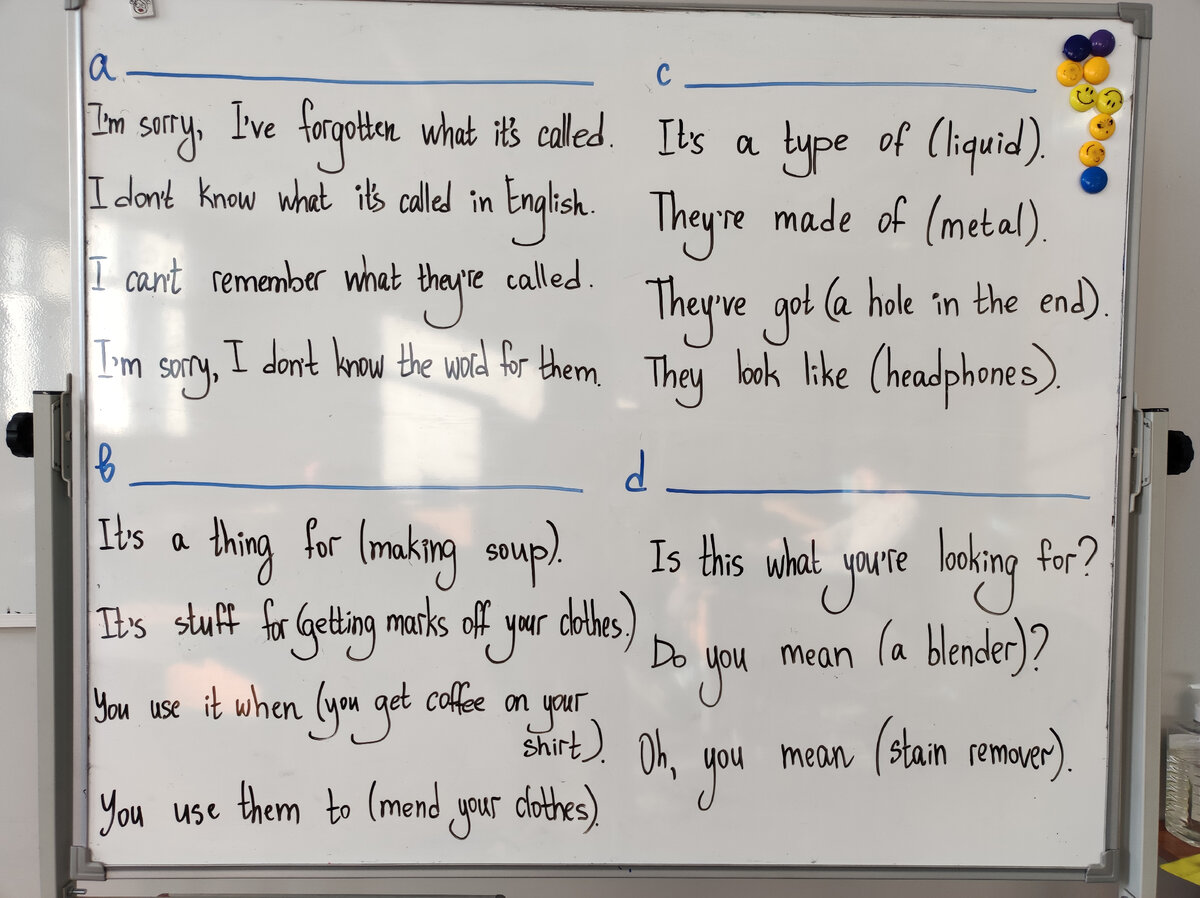 a
I'm sorry, I've forgotten what it's called.
I don't know what it's called in English.
I can't remember what they're called.
I'm sorry, I don't know the word for them.
b
It's a thing for (making soup).
It's stuff for (getting marks off your clothes.)
You use it when (you get coffee on your
shirt).
You use them to (mend your clothes).
c
It's a type of (liquid).
They're made of (metal).
They've got (a hole in the end).
They look like (headphones).
d
Is this what you're looking for?
Do you mean (a blender)?
Oh, you mean (stain remover).